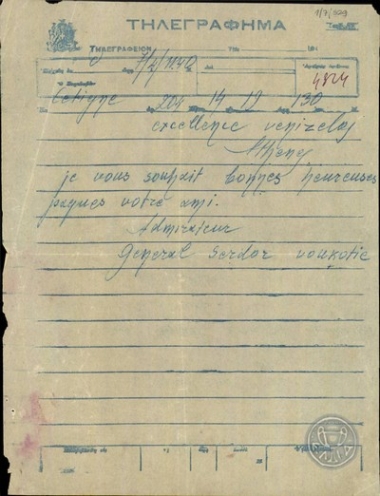 ΤΗΛΕΓΡΑΦΗΜΑ
ΤΗΛΕΓΡΑΦΕΙΟΝ
4824
Cetigne 204 14 12 130
excellence venizelos
Athenes
je vous souhait bonnes heureuses
paques votre ami.
Admirateur
General Serdar voukotic